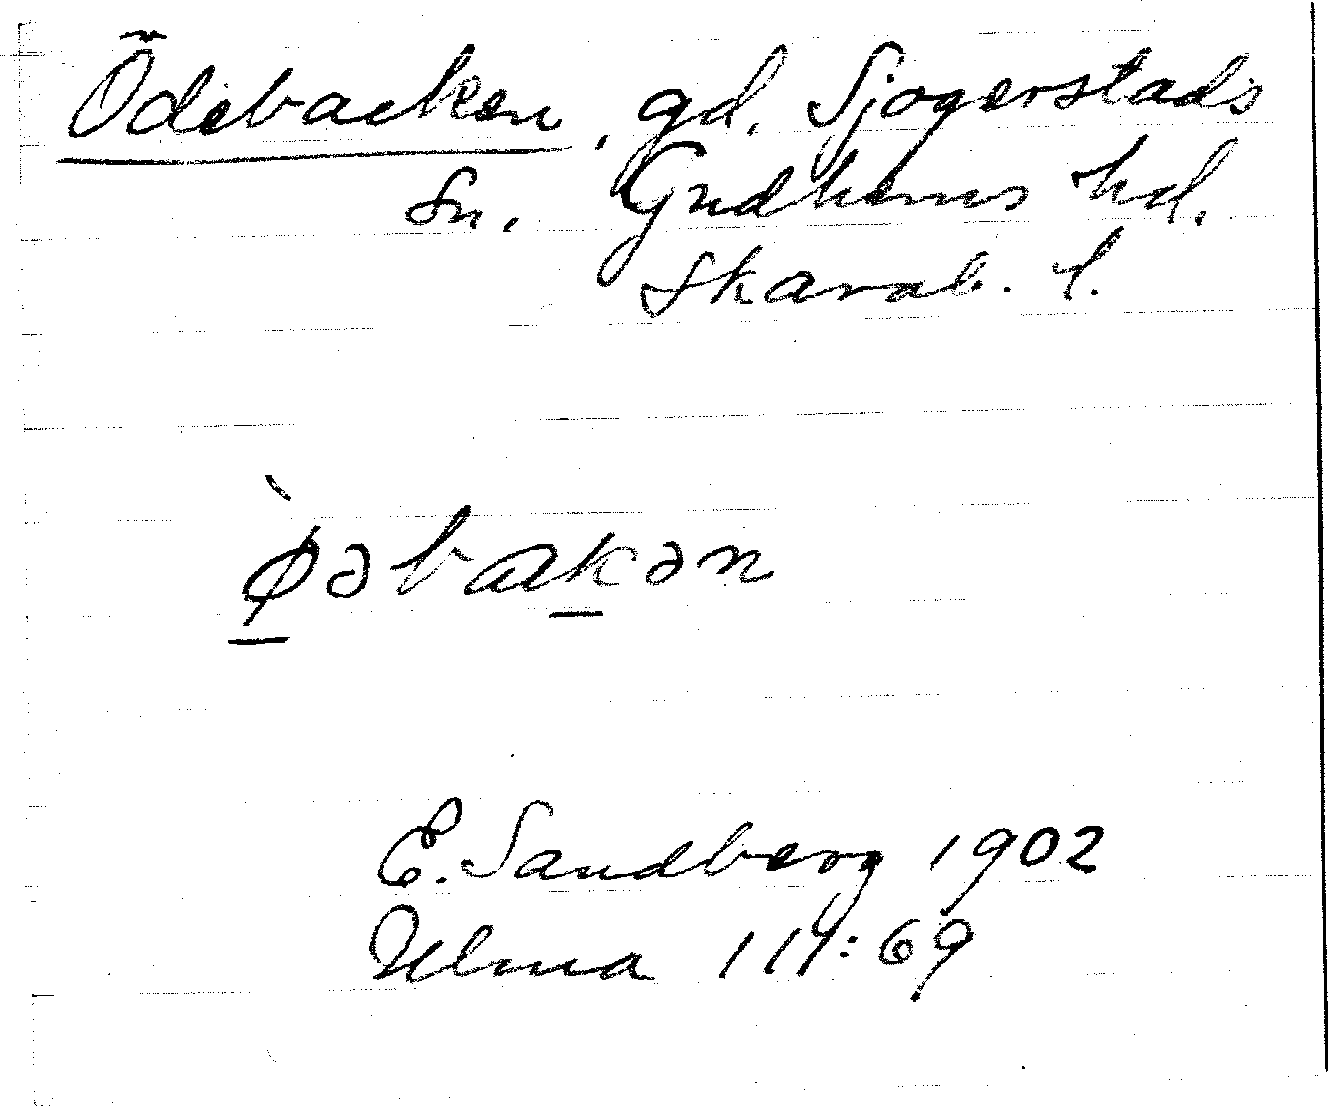 Ödebacken, gd. Sjogerstads
sn. Gudhems hd.
Skarab. l.
ø̀əbakən
E. Sandberg 1902
Ulma 111:69